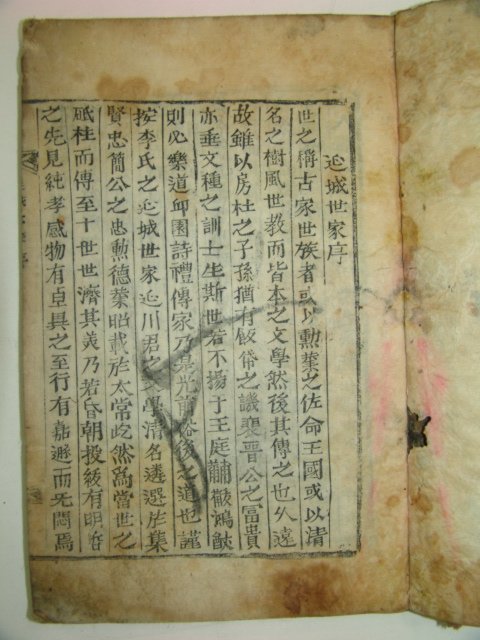 延城世家序
世之稱古家世族者或以勳業之佐命王國或以清
名之樹風世教而皆本之文學然後其傳之也久遠
故雖以房杜之子孫猶有飯帒之譏裴晋公之富貴
亦垂文種之訓士生斯世若不揚于王庭黼黻鴻猷
則必樂道邱園詩禮傳家乃是光前裕後之道也謹
按李氏之延城世家延川君之文學清名遴選於集
賢忠簡公之忠勳德業昭載於太常屹然爲當世之
砥柱而傳至十世世濟其美乃若昏朝投紱有明哲
之先見純孝感物有卓異之至行有嘉遯而无悶焉